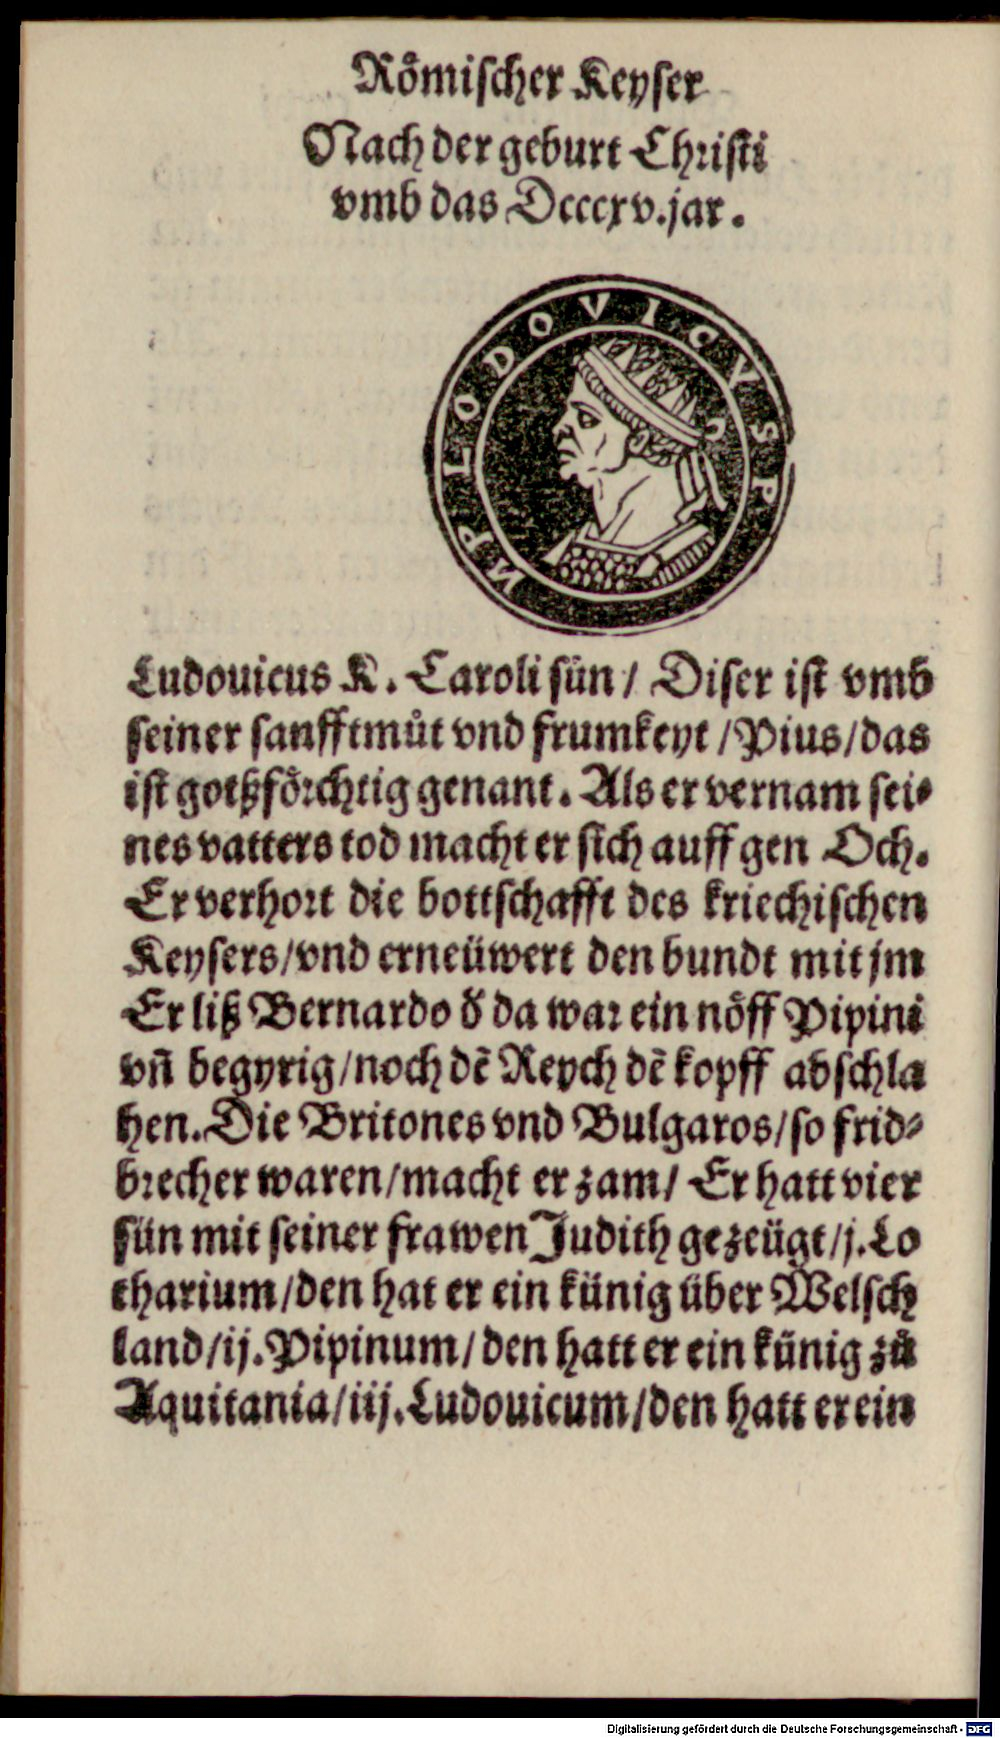 Roͤmischer Keyser
Nach der geburt Christi
vmb das Dcccxv. jar.
LODOVICVS P
N P
Ludouicus K. Caroli sün / Diser ist vmb
seiner sanfftmuͦt vnd frumkeyt / Pius / das
ist gotßfoͤrchtig genant. Als er vernam sei⸗
nes vatters tod macht er sich auff gen Och.
Er verhort die bottschafft des kriechischen
Keysers / vnd erneüwert den bundt mit jm
Er liß Bernardo d̓ da war ein noͤff Pipini
vn̄ begyrig / noch dē Reych dē kopff abschla
hen. Die Britones vnd Bulgaros / so frid⸗
brecher waren / macht er zam / Er hatt vier
sün mit seiner frawen Judith gezeügt / j. Lo
tharium / den hat er ein künig über Welsch
land / ij. Pipinum / den hatt er ein künig zuͦ
Aquitania / iij. Ludouicum / den hatt er ein
Digitalisierung gefördert durch die Deutsche Forschungsgemeinschaft - DFG